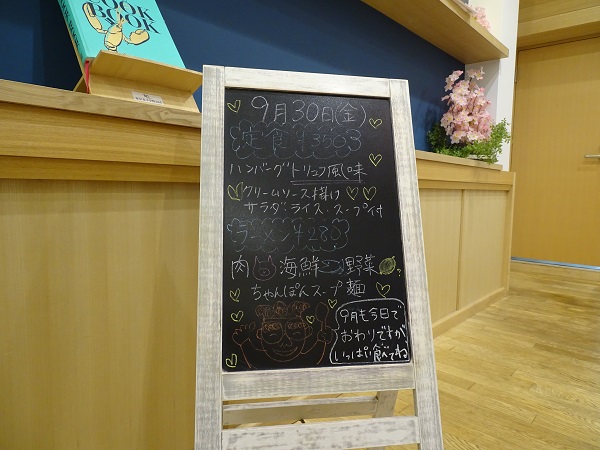 COOK
BOOK
9月30日(金)
定食 ¥350
ハンバーグトリュフ風味
クリームソース掛け
サラダ・ライス・スープ付
ラーメン ¥280
肉 海鮮 野菜
ちゃんぽんスープ麺
9月も今日で
おわりですが
いっぱい食べてね